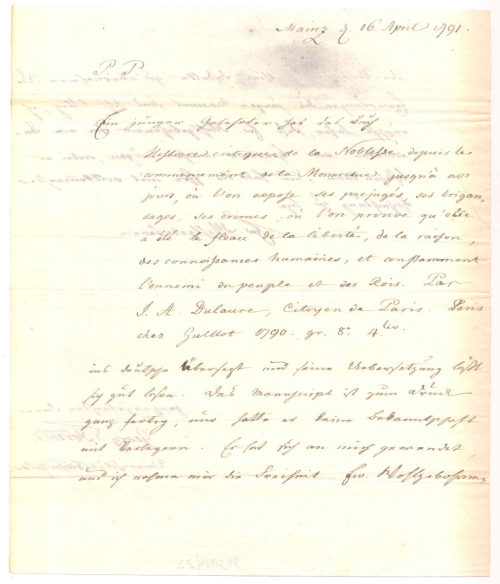 Mainz d 16. April 1791.
P. P.
Ein junger Gelehrter hat das Buch
Histoire critique de la Noblesse, depuis le
commencement de la Monarchie jusqu'à nos
jours, où l'on expose ses prejugés, ses brigan-
dages, ses crimes, où l'on prouve qu'elle
a été le fleau de la liberté, de la raison,
des connoissances humaines, et constamment
l'ennemi du peuple et des Rois. Par
J. A. Dulaure, Citoyen de Paris. Paris
chez Guillot 1790. gr. 8º. 4 liv.
ins deutsche übersezt und seine Uebersetzung läßt
sich gut lesen. Das Manuscript ist zum Druck
ganz fertig, nur hatte er keine Bekanntschaft
mit Verlegern. Er hat sich an mich gewendet,
und ich nehme mir die Freiheit Ew. Wohlgebohrn